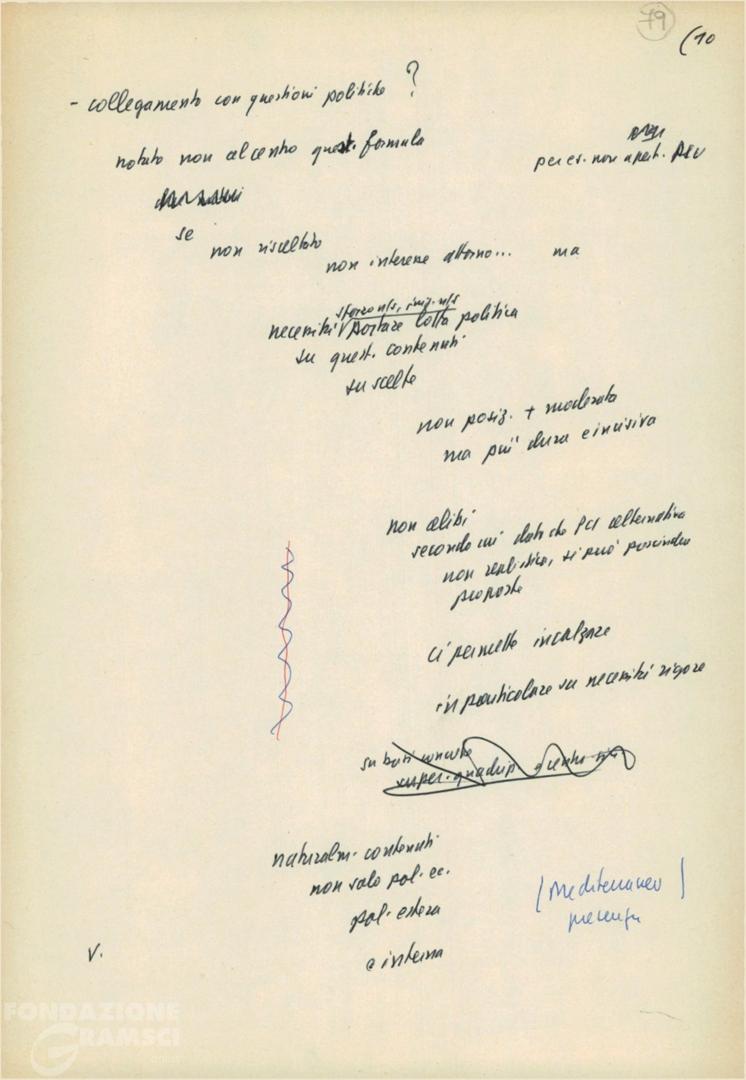 79
(10
- collegamento con questioni politiche ?
notato non al centro quest. formula
per es. non apert.
se
non riscaltato
non interesse attorno... ma
sforzo n/s, imp. n/s
necessità portare lotta politica
su quest. contenuti
su scelte
non posiz. + moderata
ma più dura e incisiva
non alibi
secondo cui dato che PCI alternativa
non realistica, si può prescindere
proposte
ci permette incalzare
in particolare su necessità rigore
su basi concrete
naturalm. contenuti
non solo pol. ec.
pol. estera
e interna
(Mediterraneo)
presenza
V.
FONDAZIONE
GRAMSCI